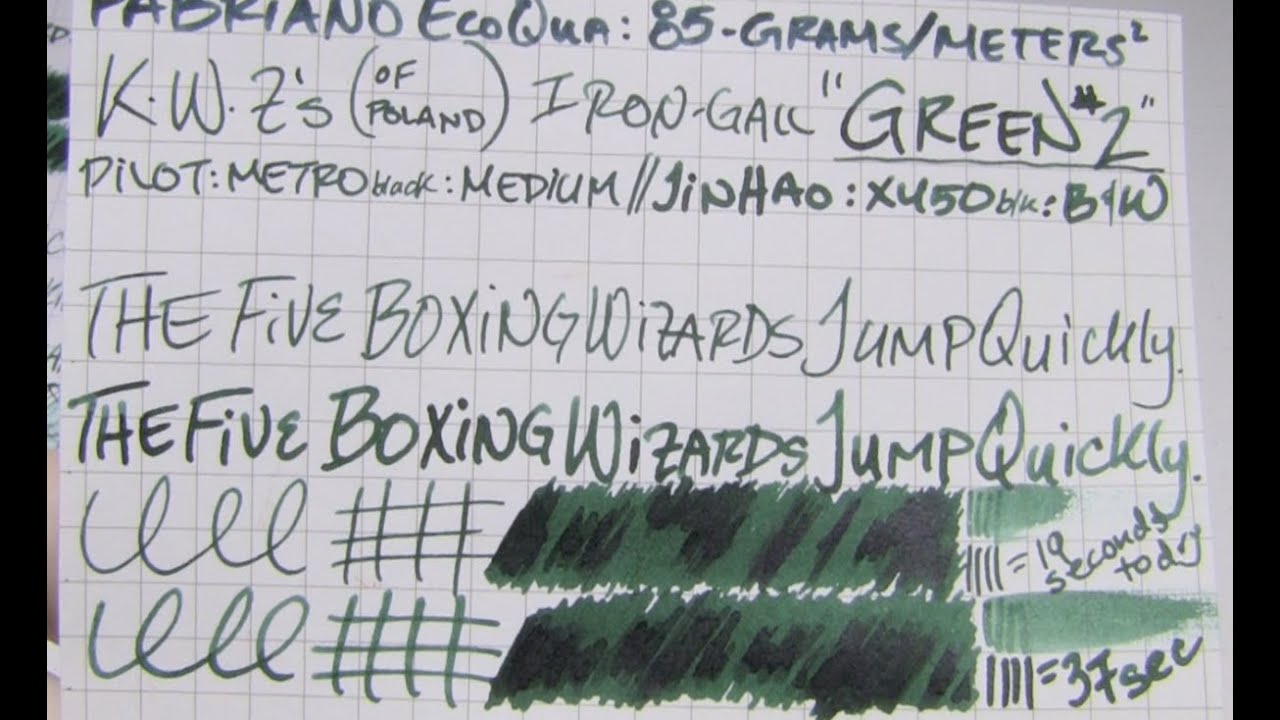 FABRIANO EcoQua: 85-GRAMS/METERS²
K.W.Z's (OF POLAND) IRON-GALL "GREEN #2"
PILOT: METRO black: MEDIUM // JINHAO: X450 blk: B&W
THE FiVE BOXiNG WiZARDS JUMP QuickLy.
THE FiVE BOXiNG WiZARDS JUMP QuickLy.
= 19 seconds to dry
= 37 sec